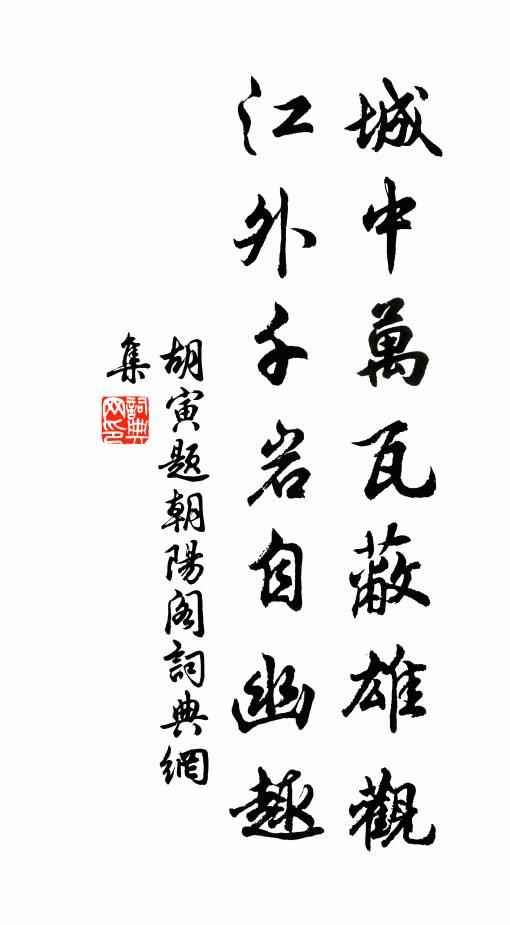 城中萬瓦蔽雄觀
江外千岩自幽趣
胡寅题朝陽阁詞典網
集
詞典
网印